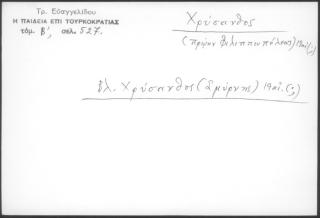 Τρ. Εὐαγγελίδου
Η ΠΑΙΔΕΙΑ ΕΠΙ ΤΟΥΡΚΟΚΡΑΤΙΑΣ
τόμ. Β', σελ. 527.
Χρύσανθος
(πρώην Φιλιππουπόλεως) 19αἰ. (;)
Βλ. Χρύσανθος (Σμύρνης) 19αἰ. (;)